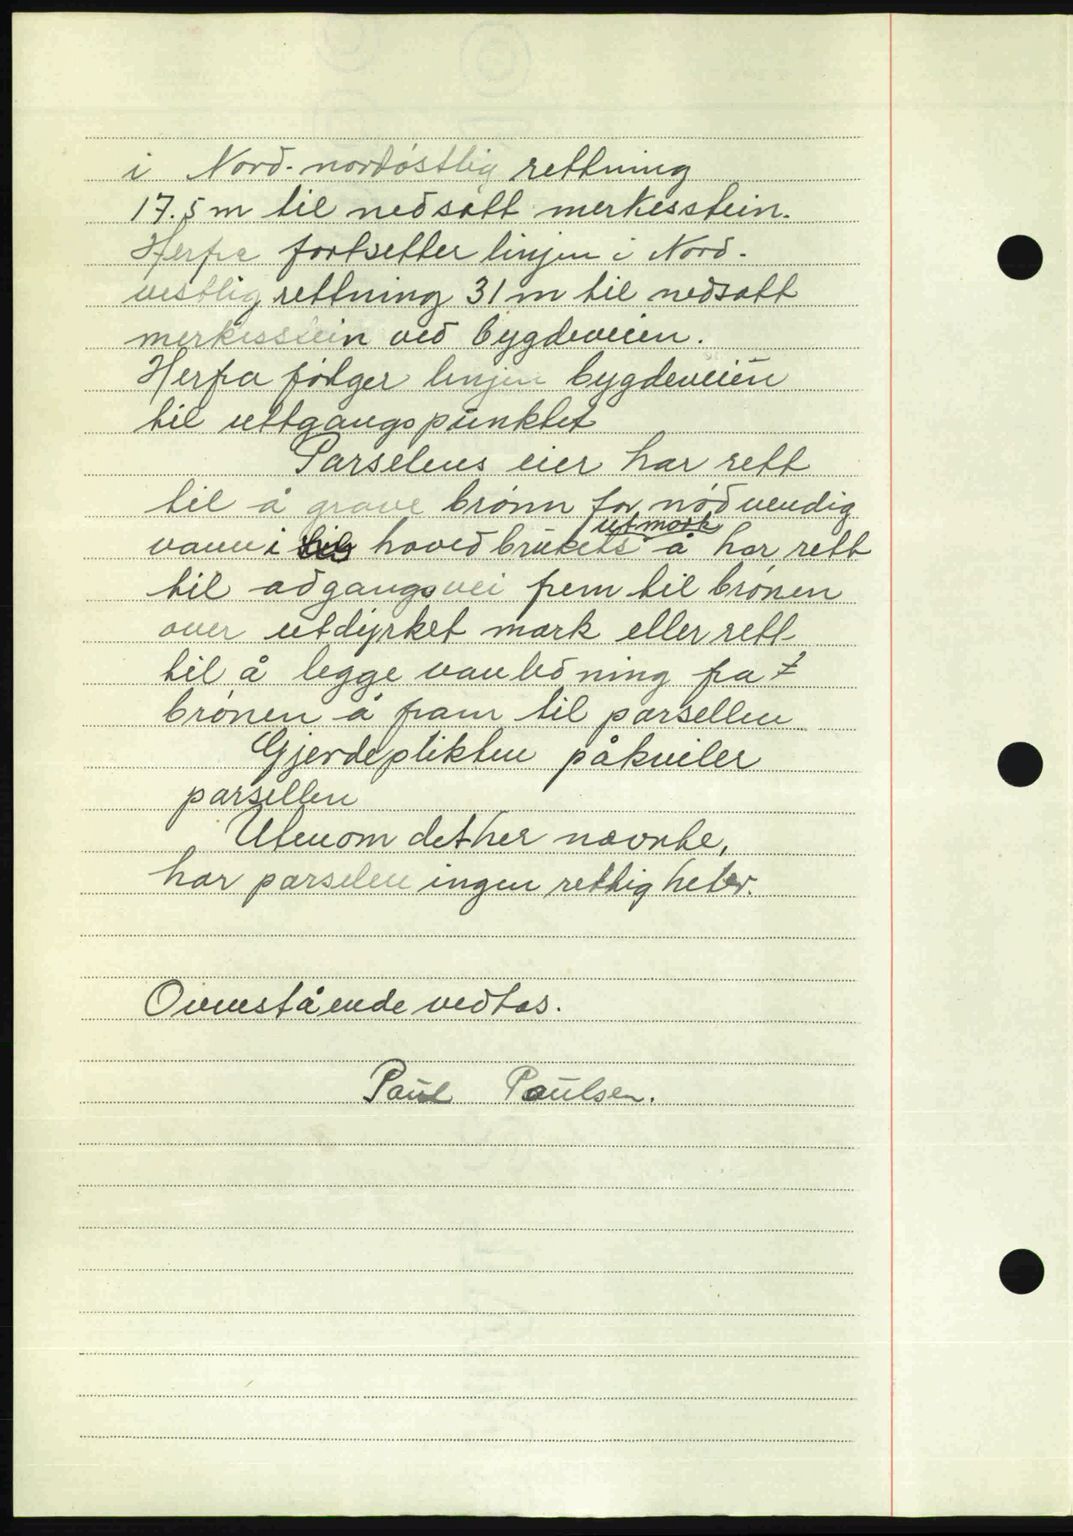 i Nord-nordøstlig rettning
17.5 m til nedsatt merkesstein.
Herfra fortsetter linjen i Nord-
vestlig rettning 31 m til nedsatt
merkesstein ved bygdeveien.
Herfra følger linjen bygdeveien
til uttgangspunktet
Parselens eier har rett
til å grave brønn for nødvendig
utmark
vann i hovedbrukets å har rett
til adgangsvei frem til brønen
over utdyrket mark eller rett
til å legge vanledning fra
brønen å fram til parsellen
Gjerdeplikten påkviler
parsellen
Utenom dether nævnte,
har parselen ingen rettigheter.
Ovenstående vedtas.
Paul Paulsen.